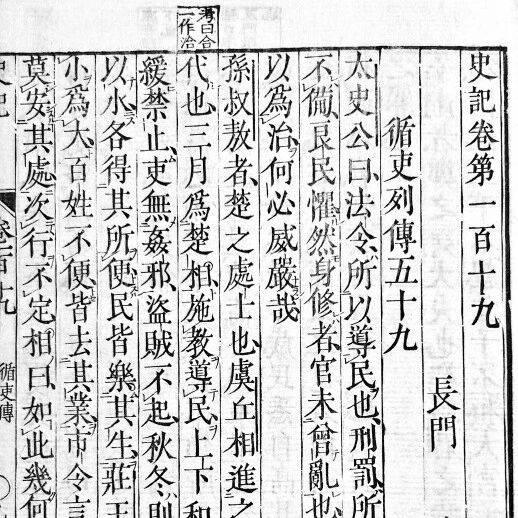 考曰合
一作治
史記卷第一百十九
長門
循吏列傳五十九
太史公曰法令所以導民也刑罰所
不備良民懼然身修者官未曾亂也
以爲治何必威嚴哉
孫叔敖者楚之處士也虞丘相進之
代也三月爲楚相施教導民上下和
緩禁止吏無姦邪盜賊不起秋冬則
以水各得其所便民皆樂其生莊王
小爲大百姓不便皆去其業市令言
莫安其處次行不定相曰如此幾何
史記 卷百十九 循吏傳